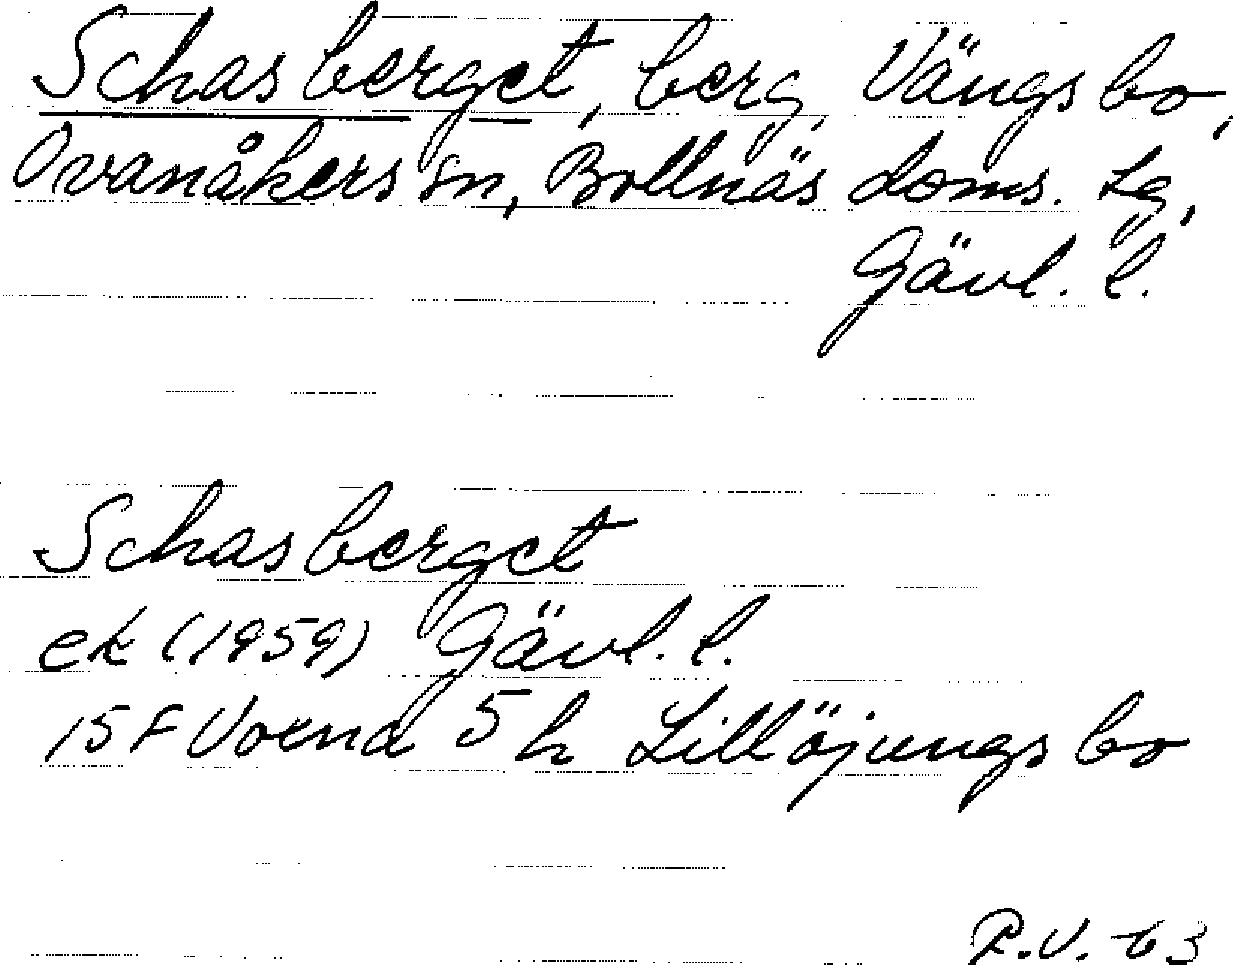 Schasberget, berg, Vängsbo,
Ovanåkers sn, Bollnäs doms. lg,
Gävl. l.
Schasberget
ek (1959) Gävl. l.
15F Voxna 5h Lillöjungsbo
R.V. 63